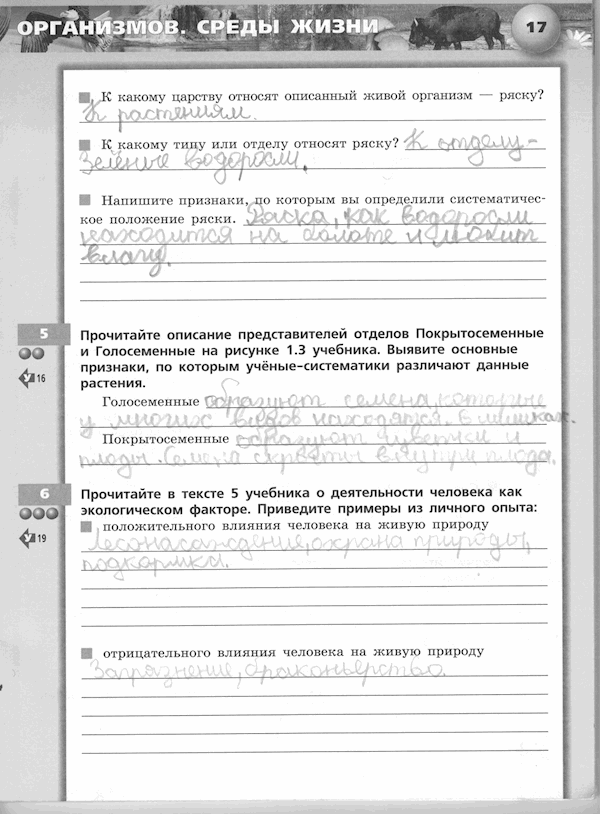 ОРГАНИЗМОВ. СРЕДЫ ЖИЗНИ
17
К какому царству относят описанный живой организм — ряску?
К растениям.
К какому типу или отделу относят ряску? К отделу-
Зелёные водоросли.
Напишите признаки, по которым вы определили систематичес-
кое положение ряски. Ряска, как водоросли
находится на болоте и любит
влагу.
5
Прочитайте описание представителей отделов Покрытосеменные
и Голосеменные на рисунке 1.3 учебника. Выявите основные
У 16
признаки, по которым учёные-систематики различают данные
растения.
Голосеменные образуют семена, которые
у многих видов находятся в шишках.
Покрытосеменные образуют цветки и
плоды. Семена скрыты внутри плода.
6
Прочитайте в тексте 5 учебника о деятельности человека как
экологическом факторе. Приведите примеры из личного опыта:
положительного влияния человека на живую природу
У 19
Лесонасаждения, охрана природы,
подкормка.
отрицательного влияния человека на живую природу
Загрязнение, браконьерство.